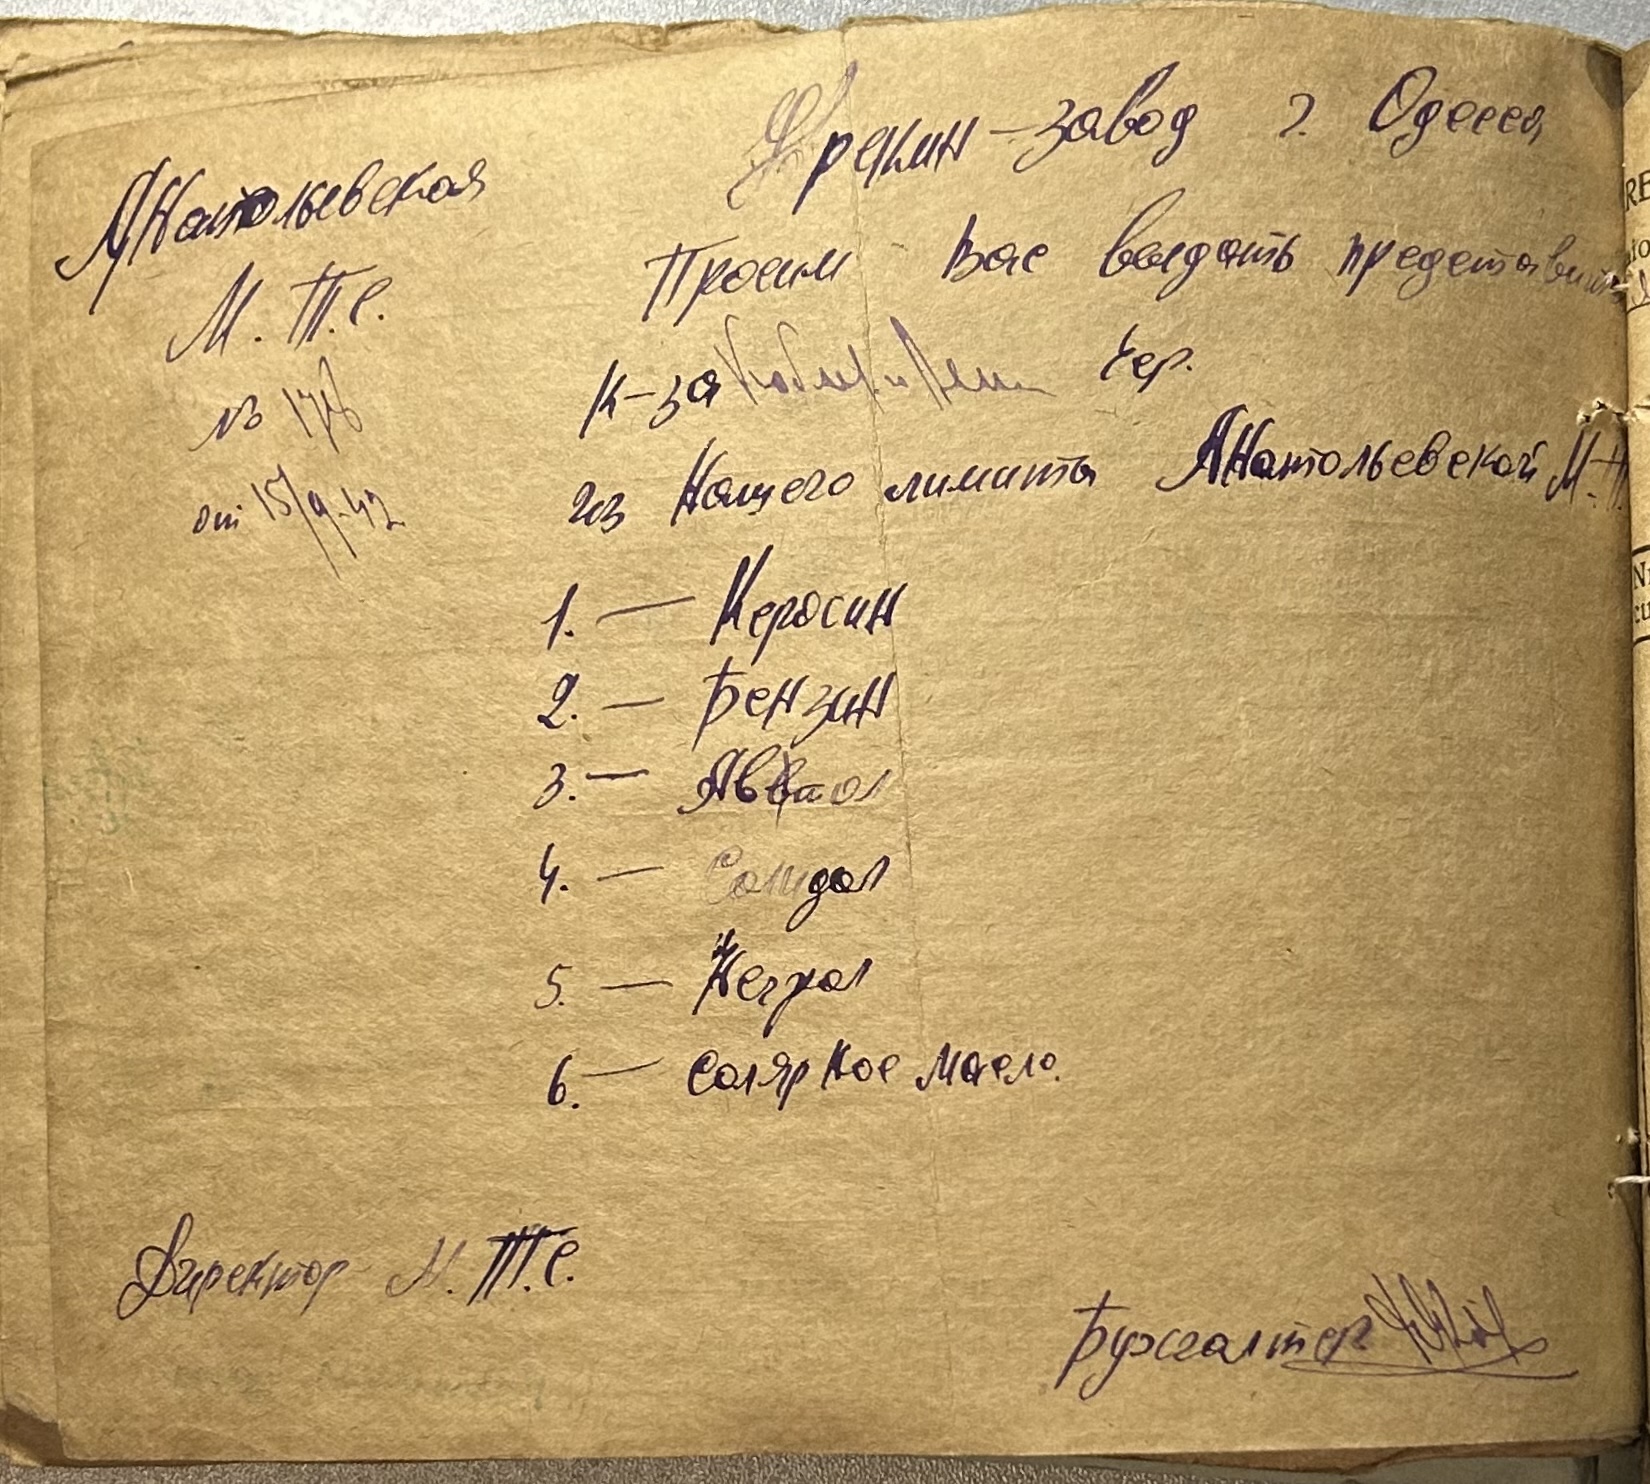 Анатольевская
М. Т. С.
№ 178
от 15/9-42
Френкин-завод г. Одесса
Просим Вас выдать представит
к-за Чер.
из Нашего лимита Анатольевской М. Т.
1. — Керосин
2. — Бензин
3. — Автол
4. — Солидол
5. — Негрол
6. — Солярное масло.
Директор М. Т. С.
Бухгалтер